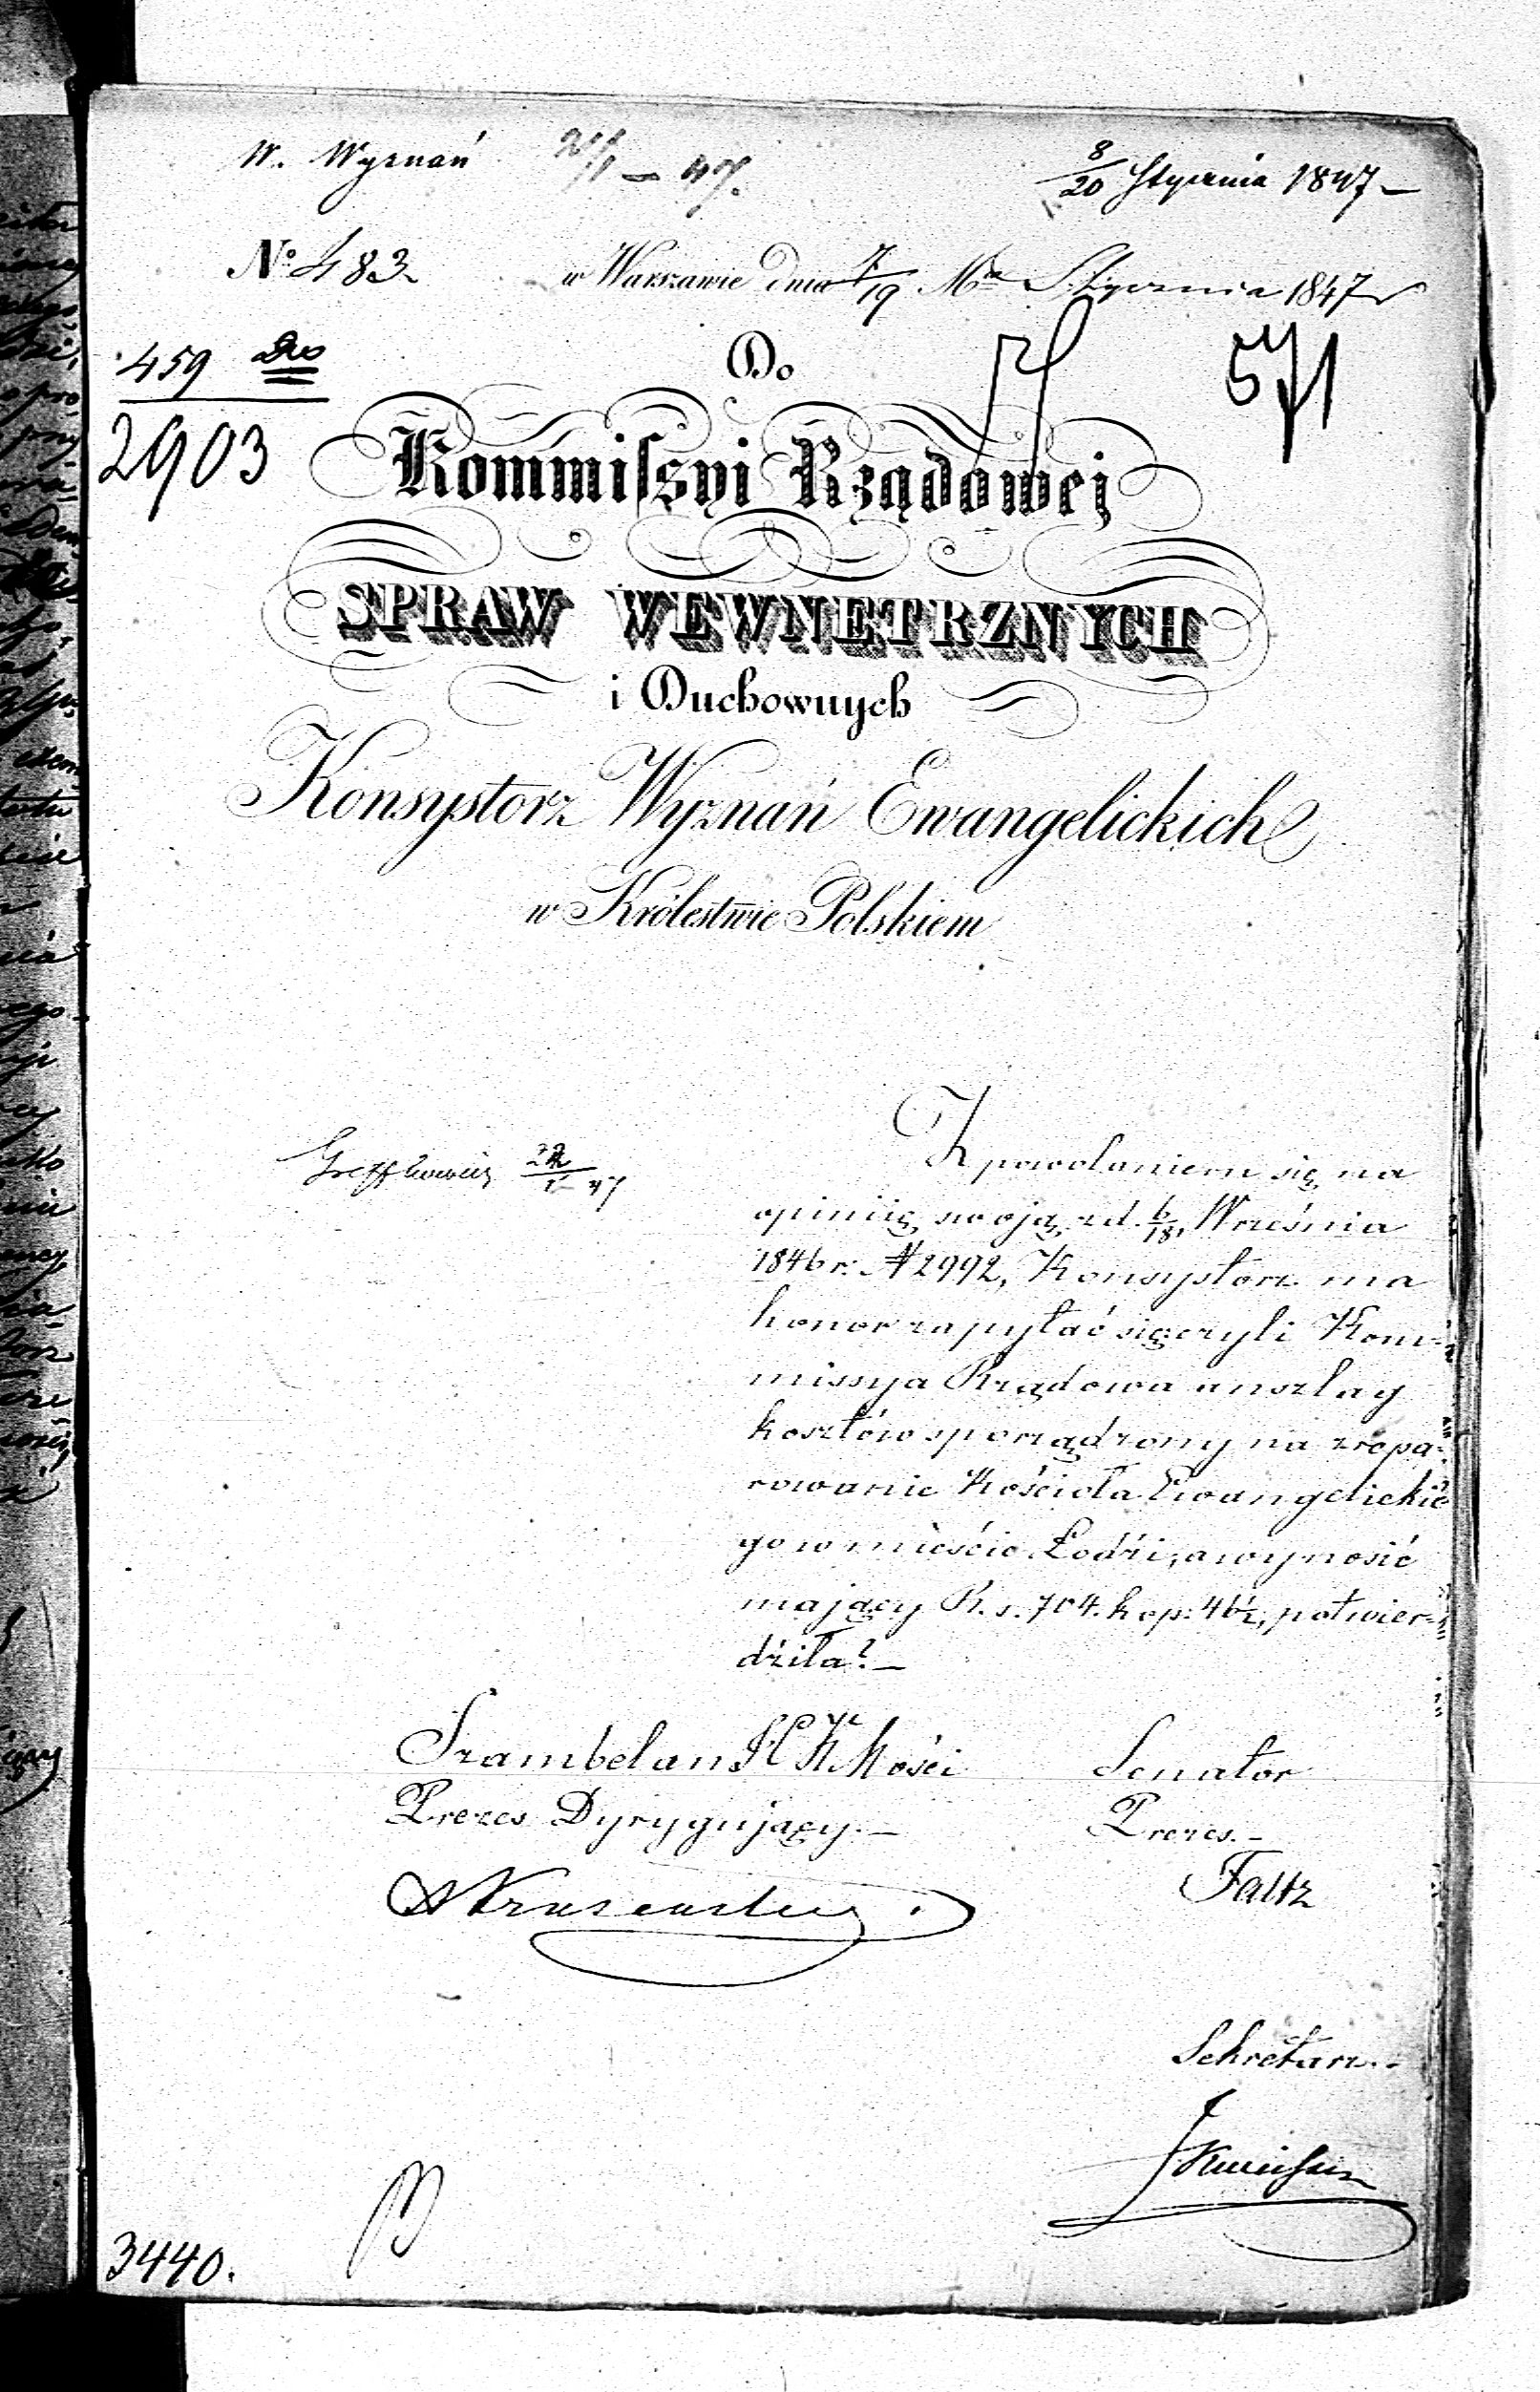 W. Wyznań 21/1 – 47. 8/20 Stycznia 1847 –
No 483 w Warszawie dnia 7/19 Mca Stycznia 1847 r
459 571
2903
Do
Kommiſsyi Rządowej
SPRAW WEWNETRZNYCH
i Duchownych
Konsystorz Wyznań Ewangelickich
w Królestwie Polskiem
Z powołaniem się na
opiniię swoją zd. 6/18 Września
1846 r: N 2992, Konsystorz ma
honor zapytać się czyli Kom-
missya Rządowa anszlag
kosztów sporządzony na zrepa-
rowanie Kościoła Ewangelickie
go w mieście Łodźi, a wynosić
mający R. s. 704. kop: 46½, potwier-
dźiła? –
Szambelan JC K Mości Senator
Prezes Dyrygujący. – Prezes. –
Faltz
Sekretarz. –
3440.